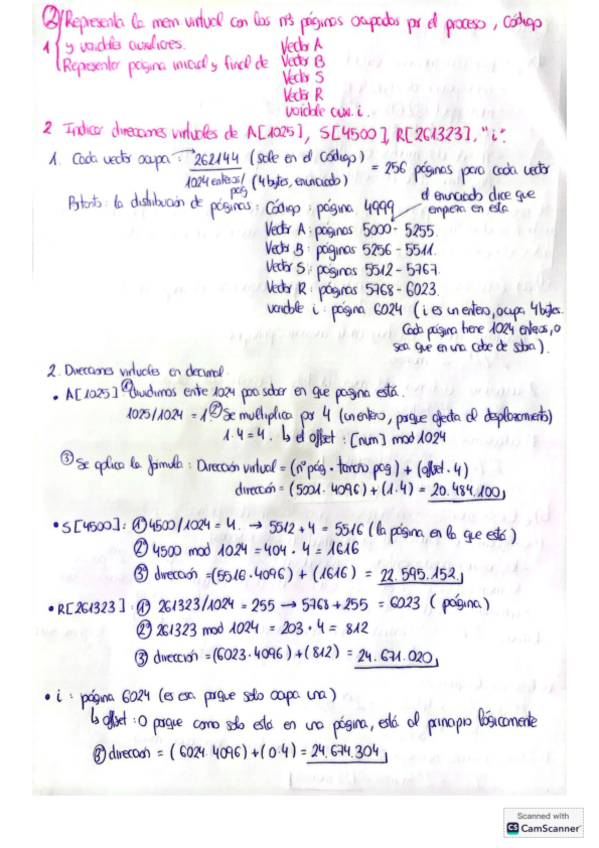 ② Representa la mem virtual con los nºs páginas ocupados por el proceso, código
1 y variables auxiliares. Vector A
Representar página inicial y final de Vector B
Vector S
Vector R
variable aux. i.
2 Indicar direcciones virtuales de A[1025], S[4500], R[261323], "i".
1. Cada vector ocupa: 262144 (sale en el código) = 256 páginas para cada vector
1024 enteros/pag (4 bytes, enunciado)
el enunciado dice que
empieza en esta
Por tanto: la distribución de páginas: Código: página 4999
Vector A: páginas 5000 - 5255.
Vector B: páginas 5256 - 5511.
Vector S: páginas 5512 - 5767.
Vector R: páginas 5768 - 6023.
variable i: página 6024 (i es un entero, ocupa 4 bytes.
Cada página tiene 1024 enteros, o
sea que en una cabe de sobra).
2. Direcciones virtuales en decimal.
• A[1025] ① dividimos entre 1024 para saber en que pagina está.
1025/1024 = 1. ② Se multiplica por 4 (un entero, porque afecta al desplazamiento)
1·4=4. ↳ el offset: [num] mod 1024
③ Se aplica la fórmula: Dirección virtual = (nº pág · tamaño pag) + (offset · 4)
dirección = (5001 · 4096) + (1·4) = 20.484.100
• S[4500]: ① 4500/1024 = 4. → 5512 + 4 = 5516 (la página en la que está)
② 4500 mod 1024 = 404 · 4 = 1616
③ dirección = (5516·4096) + (1616) = 22.595.152.
• R[261323]: ① 261323/1024 = 255 → 5768 + 255 = 6023 (página)
② 261323 mod 1024 = 203 · 4 = 812
③ dirección = (6023·4096) + (812) = 24.671.020
• i: página 6024 (es esa porque solo ocupa una)
↳ offset: 0 porque como solo está en una página, está al principio lógicamente
③ dirección = (6024·4096) + (0·4) = 24.674.304
Scanned with
CS CamScanner